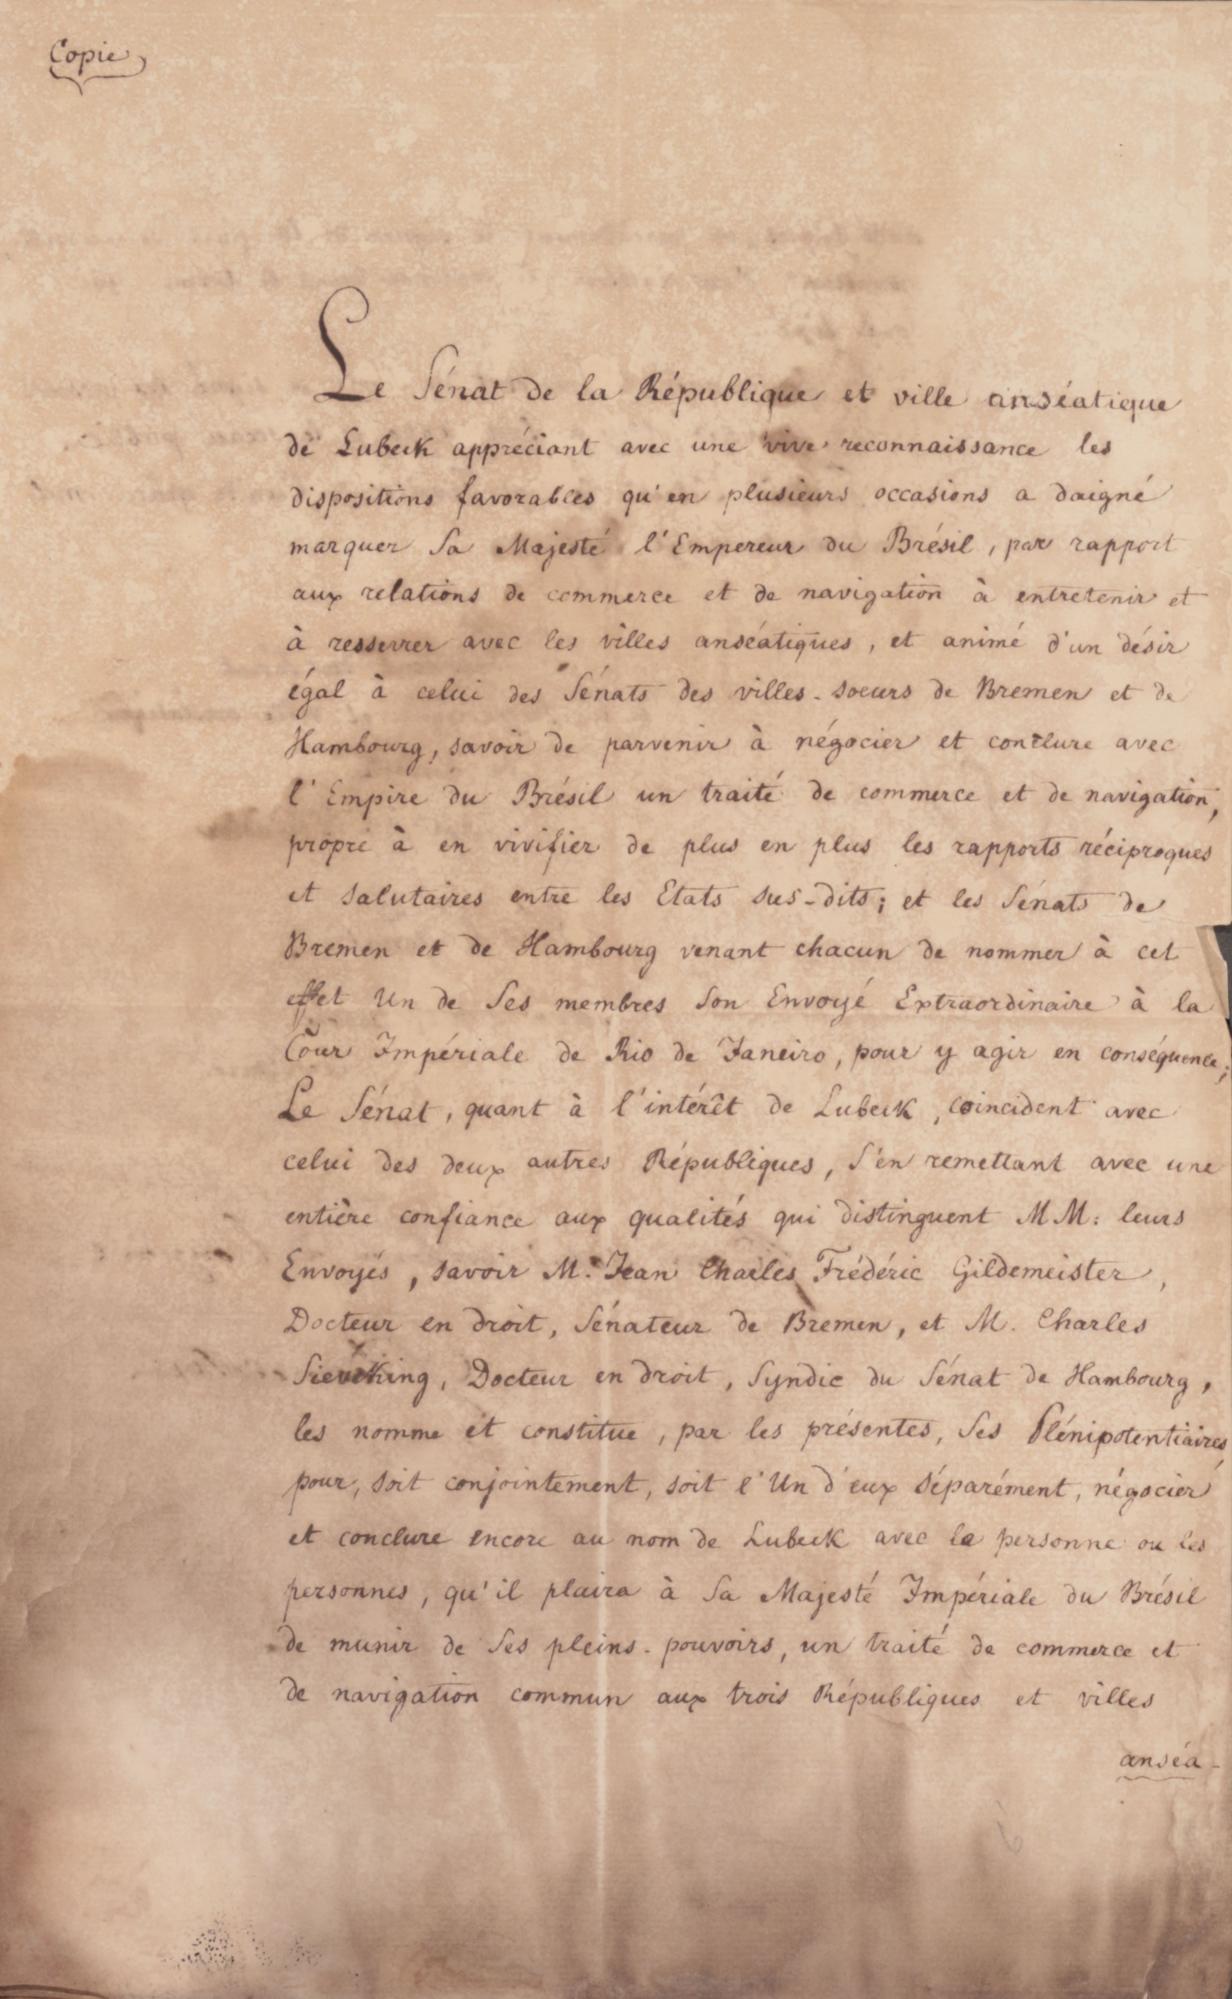 Copie
Le Sénat de la République et ville anséatique
de Lubeck appréciant avec une vive reconnaissance les
dispositions favorables qu'en plusieurs occasions a daigné
marquer Sa Majesté l'Empereur du Brésil, par rapport
aux relations de commerce et de navigation à entretenir et
à resserrer avec les villes anséatiques, et animé d'un désir
égal à celui des Sénats des villes-soeurs de Bremen et de
Hambourg, savoir de parvenir à négocier et conclure avec
l'Empire du Brésil un traité de commerce et de navigation,
propre à en vivifier de plus en plus les rapports réciproques
et salutaires entre les Etats sus-dits; et les Sénats de
Bremen et de Hambourg venant chacun de nommer à cet
effet Un de Ses membres Son Envoyé Extraordinaire à la
Cour Impériale de Rio de Janeiro, pour y agir en conséquence;
Le Sénat, quant à l'intérêt de Lubeck, coincident avec
celui des deux autres Républiques, s'en remettant avec une
entière confiance aux qualités qui distinguent MM: leurs
Envoyés, savoir M. Jean Charles Frédéric Gildemeister,
Docteur en droit, Sénateur de Bremen, et M. Charles
Sieveking, Docteur en droit, Syndic du Sénat de Hambourg,
les nomme et constitue, par les présentes, Ses Plénipotentiaires,
pour, soit conjointement, soit l'Un d'eux séparément, négocier
et conclure encore au nom de Lubeck avec la personne ou les
personnes, qu'il plaira à Sa Majesté Impériale du Brésil
de munir de Ses pleins-pouvoirs, un traité de commerce et
de navigation commun aux trois Républiques et villes
anséa-